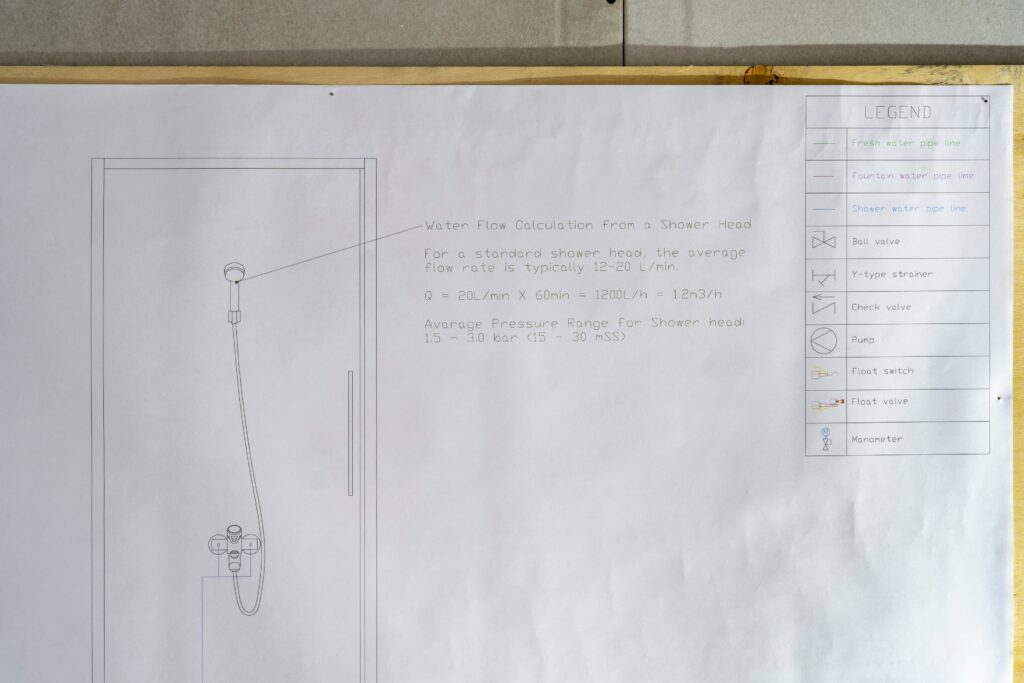 Water Flow Calculation from a Shower Head
For a standard shower head, the average
flow rate is typically 12-20 L/min.
Q = 20L/min X 60min = 1200L/h = 1.2m3/h
Avarage Pressure Range for Shower head:
1.5 - 3.0 bar (15 - 30 mSS)
LEGEND
Fresh water pipe line
Fountain water pipe line
Shower water pipe line
Ball valve
Y-type strainer
Check valve
Pump
Float switch
Float valve
M
Manometer